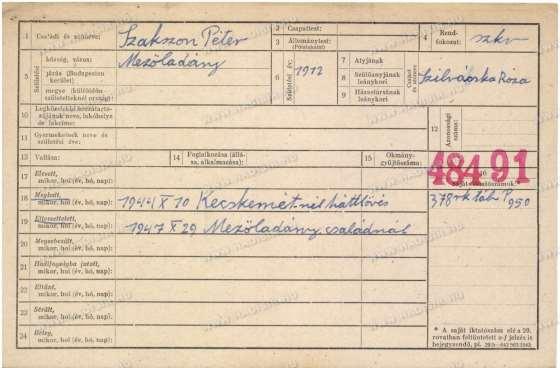 1 Családi és utóneve: Szakszon Péter
2 Csapattest:
3 Állománytest: (Pótalakulat)
4 Rendfokozat: szkv
5 Születési község, város: Mezőladány
járás (Budapesten kerület)
megye (külföldön születetteknél ország):
6 Születési év: 1912
7 Atyjának
8 Szülőanyjának leánykori
9 Házastársának leánykori
Családi és utóneve
Szilvácska Róza
10 Legközelebbi hozzátartozójának neve, lakóhelye és lakcíme:
11 Gyermekeinek neve és születési éve:
12 Azonossági száma:
13 Vallása:
14 Foglalkozása (állása, alkalmazása):
15 Okmánygyűjtőszáma:
48491
16
17 Elesett, mikor, hol (év, hó, nap):
18 Meghalt, mikor, hol (év, hó, nap): 1944 X 10 Kecskemét-nél
378
950
19 Eltemettetett, mikor, hol (év, hó, nap): 1947 X 29 Mezőladány családnál
20 Megsebesült, mikor, hol (év, hó, nap):
21 Hadifogságba jutott, mikor, hol (év, hó, nap):
22 Eltünt, mikor, hol (év, hó, nap):
23 Sérült, mikor, hol (év, hó, nap):
24 Beteg, mikor, hol (év, hó, nap):
* A saját iktatószám elé a 20. rovatban feltüntetett a-f jelzés is bejegyzendő, pl.
WWW.HADISIR.HU